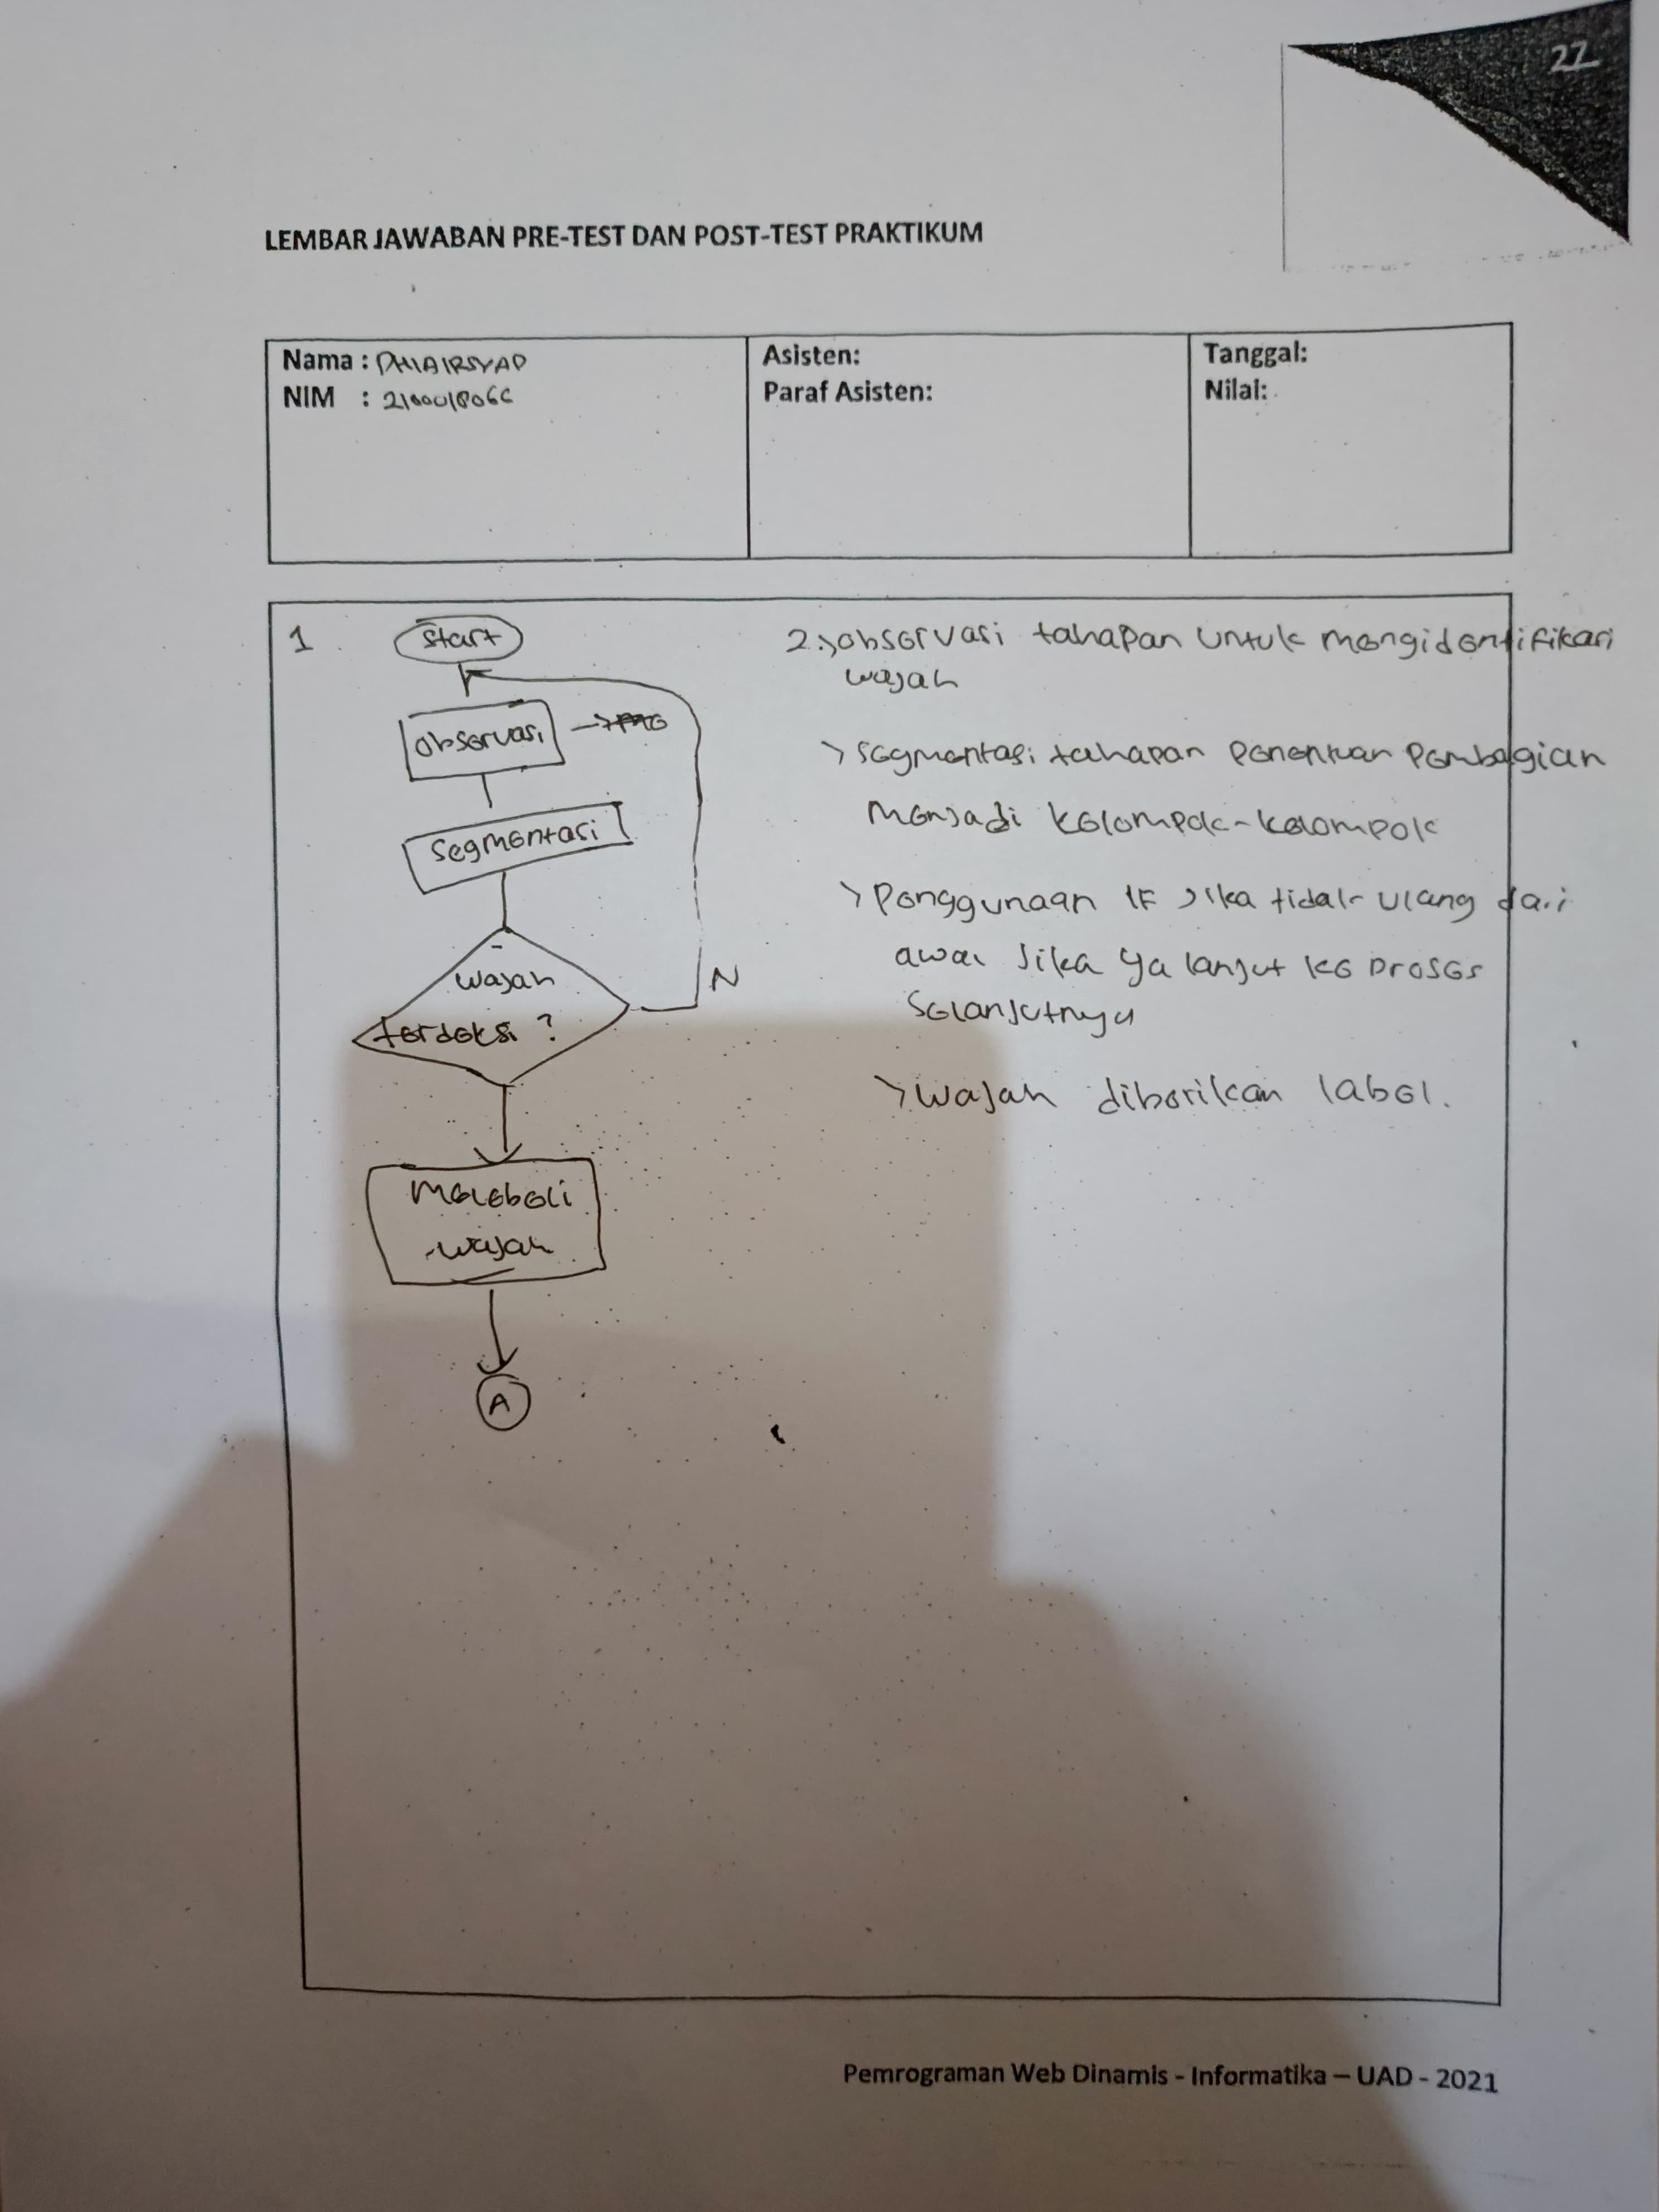 22
LEMBAR JAWABAN PRE-TEST DAN POST-TEST PRAKTIKUM
Nama : DHIAIRSYAD
NIM : 2100018066
Asisten:
Paraf Asisten:
Tanggal:
Nilai:
1
Start
Observasi
Segmentasi
wajah
terdeksi ?
N
Melebeli
wajah
A
2. > observasi tahapan untuk mengidentifikasi
wajah
> segmentasi tahapan penentuan pembagian
menjadi kelompok-kelompok
> Penggunaan IF jika tidak ulang dari
awal jika ya lanjut ke proses
selanjutnya
> wajah diberikan label.
Pemrograman Web Dinamis - Informatika – UAD - 2021